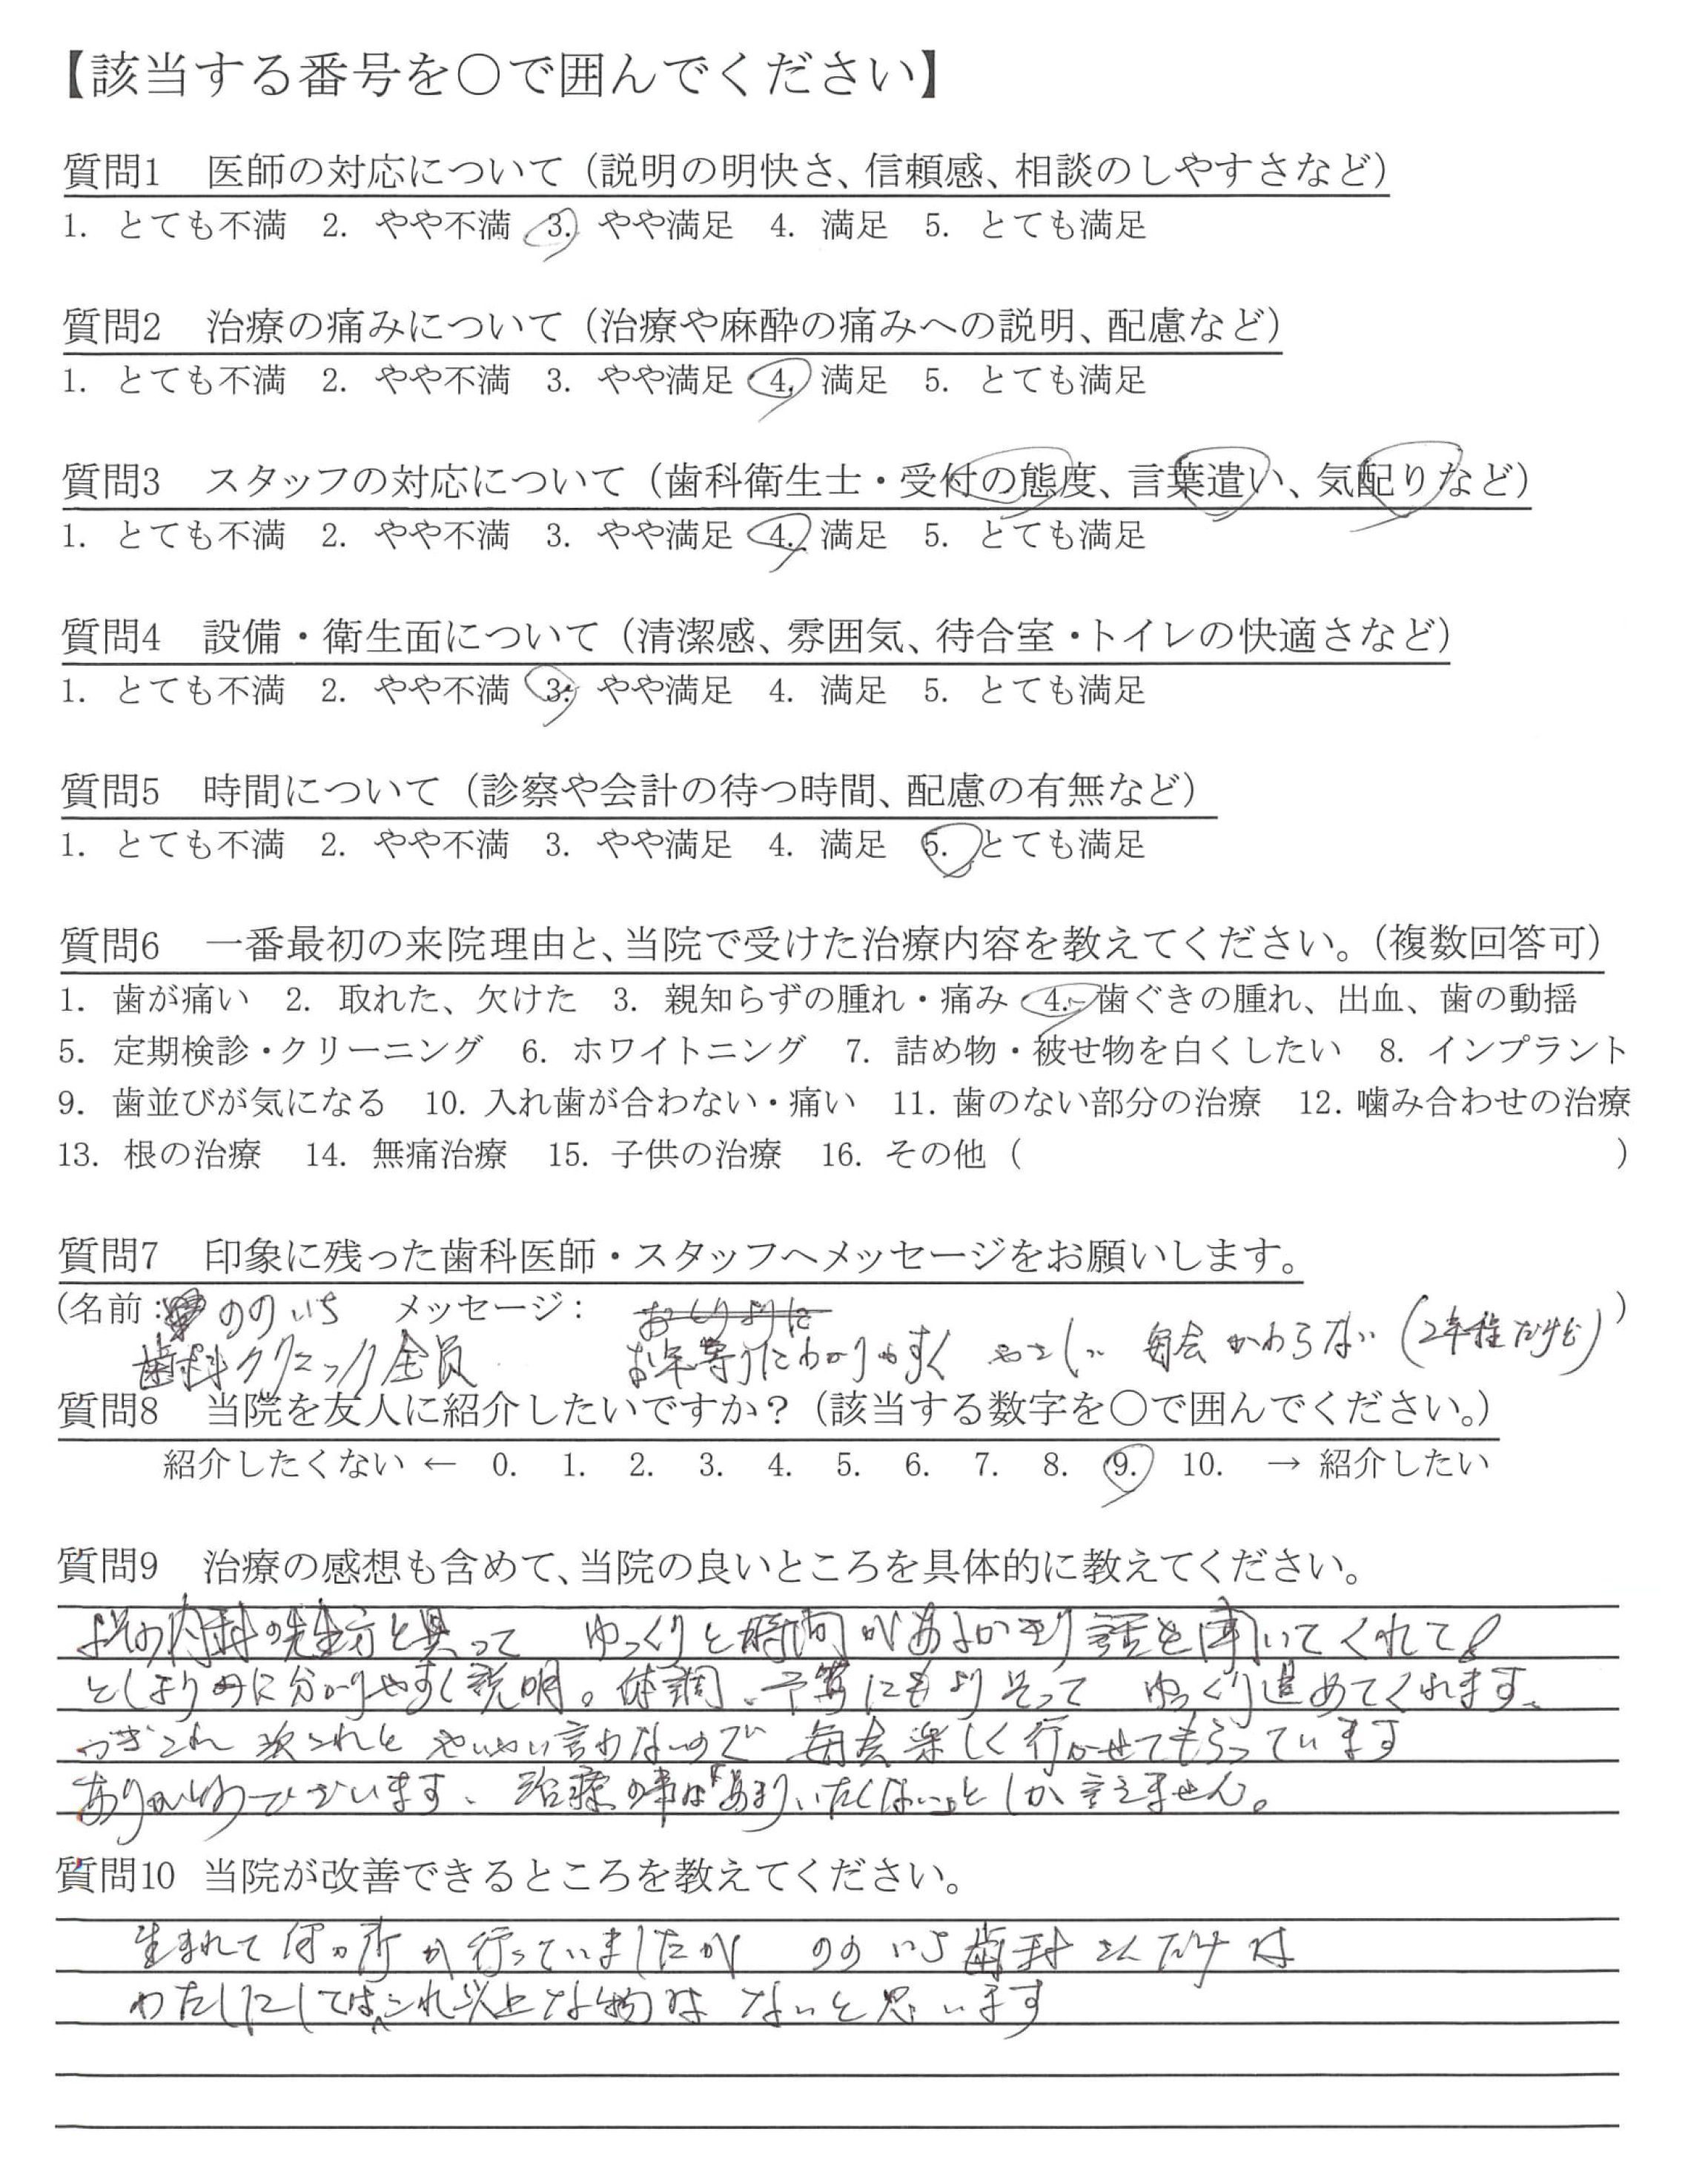 【該当する番号を○で囲んでください】
質問1 医師の対応について（説明の明快さ、信頼感、相談のしやすさなど）
1. とても不満 2. やや不満 3. やや満足 4. 満足 5. とても満足
質問2 治療の痛みについて（治療や麻酔の痛みへの説明、配慮など）
1. とても不満 2. やや不満 3. やや満足 4. 満足 5. とても満足
質問3 スタッフの対応について（歯科衛生士・受付の態度、言葉遣い、気配りなど）
1. とても不満 2. やや不満 3. やや満足 4. 満足 5. とても満足
質問4 設備・衛生面について（清潔感、雰囲気、待合室・トイレの快適さなど）
1. とても不満 2. やや不満 3. やや満足 4. 満足 5. とても満足
質問5 時間について（診察や会計の待つ時間、配慮の有無など）
1. とても不満 2. やや不満 3. やや満足 4. 満足 5. とても満足
質問6 一番最初の来院理由と、当院で受けた治療内容を教えてください。（複数回答可）
1. 歯が痛い 2. 取れた、欠けた 3. 親知らずの腫れ・痛み 4. 歯ぐきの腫れ、出血、歯の動揺
5. 定期検診・クリーニング 6. ホワイトニング 7. 詰め物・被せ物を白くしたい 8. インプラント
9. 歯並びが気になる 10. 入れ歯が合わない・痛い 11. 歯のない部分の治療 12. 噛み合わせの治療
13. 根の治療 14. 無痛治療 15. 子供の治療 16. その他（ ）
質問7 印象に残った歯科医師・スタッフへメッセージをお願いします。
（名前： ののいち メッセージ： おとしよりに ）
歯科クリニック全員 お年寄りにわかりやすく やさしい 毎会かわらない（2年程だけど）
質問8 当院を友人に紹介したいですか？（該当する数字を○で囲んでください。）
紹介したくない ← 0. 1. 2. 3. 4. 5. 6. 7. 8. 9. 10. → 紹介したい
質問9 治療の感想も含めて、当院の良いところを具体的に教えてください。
よその内科の先生方と異って ゆっくりと時間があるかぎり話を聞いてくれて
としよりに分かりやすく説明。体調、予算にもよりそって ゆっくり進めてくれます、
つぎこれ 次これと やいやい言わないので 毎会楽しく行かせてもらっています
ありがとうございます、治療の事は「あまりいたくない」としか言えません。
質問10 当院が改善できるところを教えてください。
生まれて何カ所か行っていましたが ののいち歯科さんだけは
わたしにしてはこれ以上な物は ないと思います